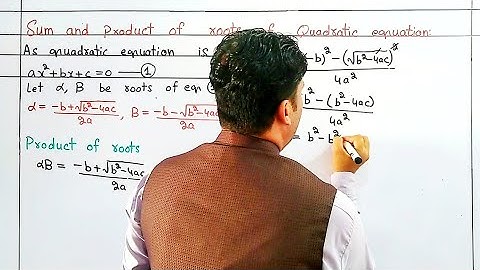 Sum and Product of roots of Quadratic equation:
As quadratic equation is
ax²+bx+c=0 —①
Let α, B be roots of eqn
α = (-b+√(b²-4ac))/2a , B = (-b-√(b²-4ac))/2a
Product of roots
αB = (-b+√(b²-4ac))/2a
-b)² - (√(b²-4ac))²
4a²
b² - (b²-4ac)
4a²
= b² - b²